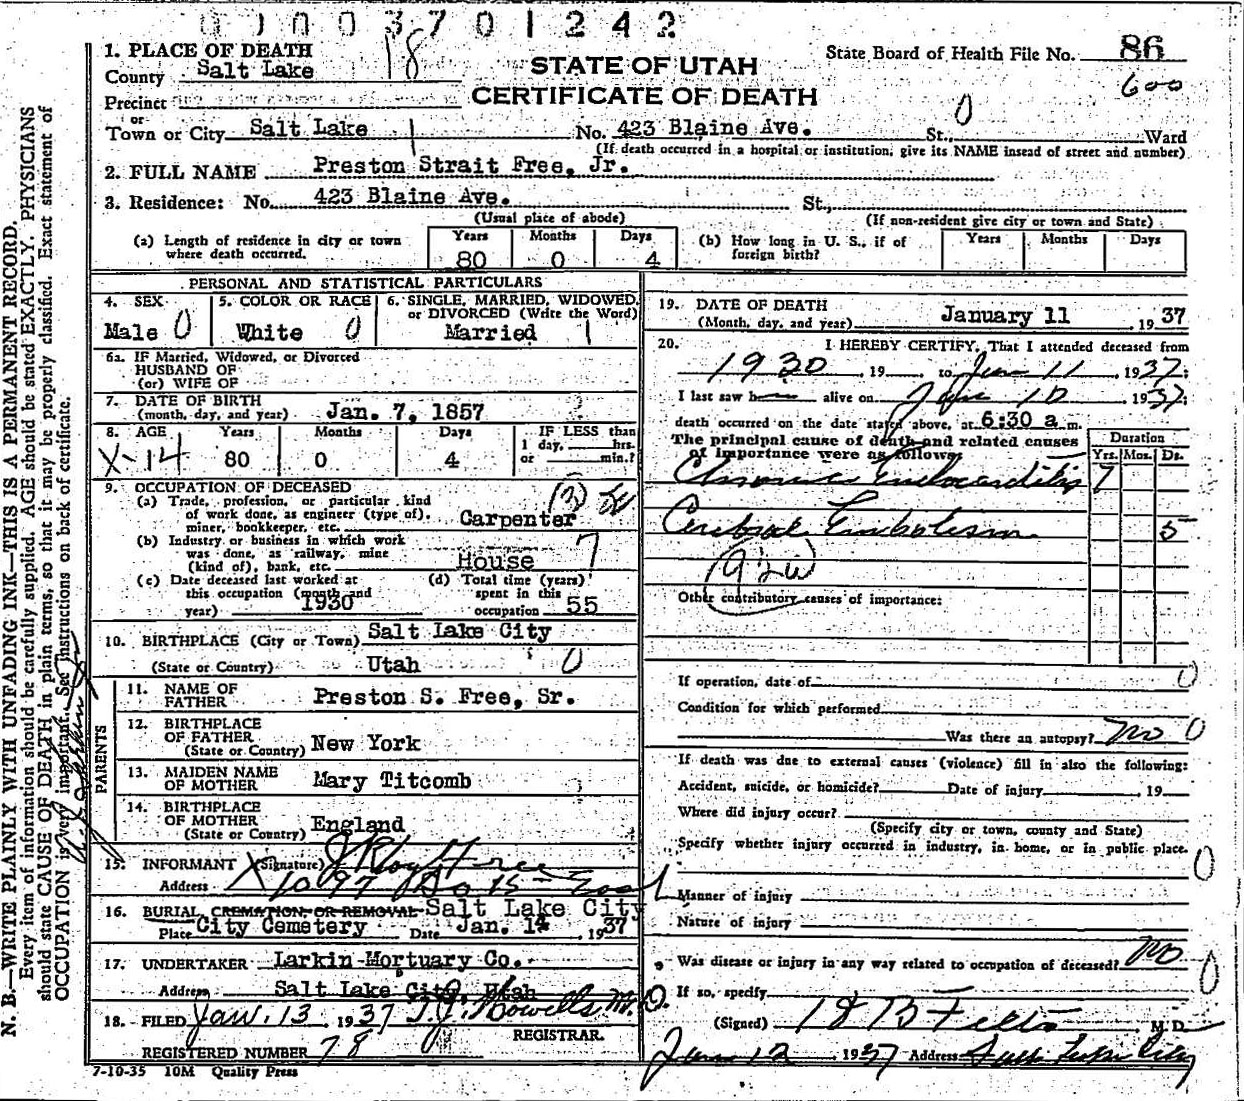 0 1 0 0 3 7 0 1 2 4 2
1. PLACE OF DEATH
County Salt Lake 18
STATE OF UTAH
CERTIFICATE OF DEATH
State Board of Health File No. 86
600
Precinct
or
Town or City Salt Lake 1 No. 423 Blaine Ave. St., 0 Ward
(If death occurred in a hospital or institution, give its NAME insead of street and number)
2. FULL NAME Preston Strait Free, Jr.
3. Residence: No. 423 Blaine Ave. St.,
(Usual place of abode) (If non-resident give city or town and State)
(a) Length of residence in city or town where death occurred. Years 80 Months 0 Days 4
(b) How long in U. S., if of foreign birth? Years Months Days
PERSONAL AND STATISTICAL PARTICULARS
4. SEX Male 0
5. COLOR OR RACE White 0
6. SINGLE, MARRIED, WIDOWED, or DIVORCED (Write the Word) Married 1
6a. IF Married, Widowed, or Divorced
HUSBAND OF
(or) WIFE OF
7. DATE OF BIRTH
(month, day, and year) Jan. 7, 1857
8. AGE Years Months Days IF LESS than
X-14 80 0 4 1 day, hrs. or min.?
9. OCCUPATION OF DECEASED
(a) Trade, profession, or particular kind
of work done, as engineer (type of),
miner, bookkeeper, etc. Carpenter
(b) Industry or business in which work
was done, as railway, mine
(kind of), bank, etc. House 7
(c) Date deceased last worked at
this occupation (month and
year) 1930
(d) Total time (years)
spent in this
occupation 55
10. BIRTHPLACE (City or Town) Salt Lake City
(State or Country) Utah 0
PARENTS
11. NAME OF FATHER Preston S. Free, Sr.
12. BIRTHPLACE OF FATHER
(State or Country) New York
13. MAIDEN NAME OF MOTHER Mary Titcomb
14. BIRTHPLACE OF MOTHER
(State or Country) England
15. INFORMANT X (Signature) J Roy Free
Address 1097 So 15th East
16. BURIAL, CREMATION, OR REMOVAL Salt Lake City
Place City Cemetery Date Jan. 14, 1937
17. UNDERTAKER Larkin Mortuary Co.
Address Salt Lake City, Utah
18. FILED Jan. 13, 1937 T.J. Howells M.D.
REGISTRAR.
REGISTERED NUMBER 78
7-10-35 10M Quality Press
19. DATE OF DEATH
(Month, day, and year) January 11, 1937
20. I HEREBY CERTIFY, That I attended deceased from
1930, 19 to Jan 11, 1937;
I last saw h alive on Jan 10 1937;
death occurred on the date stated above, at 6:30 a m.
The principal cause of death and related causes
of importance were as follows:
Duration
Yrs. Mos. Ds.
Chronic Endocarditis 7
Cerebral Embolism 5
Other contributory causes of importance:
If operation, date of 0
Condition for which performed
Was there an autopsy? No 0
If death was due to external causes (violence) fill in also the following:
Accident, suicide, or homicide? Date of injury , 19
Where did injury occur?
(Specify city or town, county and State)
Specify whether injury occurred in industry, in home, or in public place.
0
Manner of injury
Nature of injury
Was disease or injury in any way related to occupation of deceased? No
0
If so, specify
(Signed) M. D.
Jan 12, 1937 Address Salt Lake City
N. B.—WRITE PLAINLY WITH UNFADING INK—THIS IS A PERMANENT RECORD.
Every item of information should be carefully supplied. AGE should be stated EXACTLY. PHYSICIANS
should state CAUSE OF DEATH in plain terms, so that it may be properly classified. Exact statement of
OCCUPATION is very important. See instructions on back of certificate.